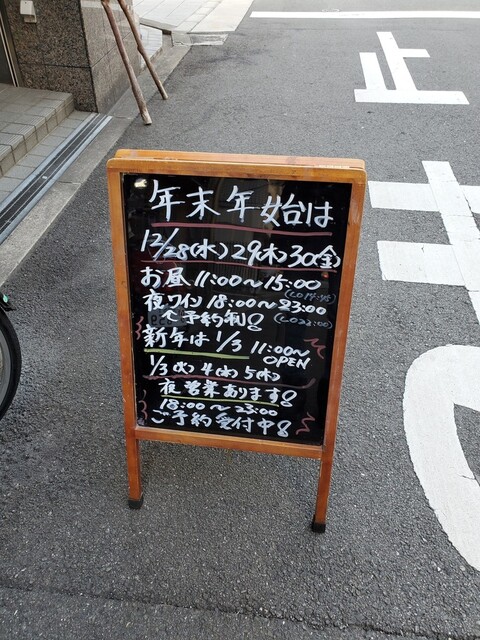 年末年始は
12/28(水)29(木)30(金)
お昼11:00〜15:00
(LO14:45)
夜ワイン18:00〜23:00
(LO22:00)
ご予約制
新年は1/3 11:00〜
OPEN
1/3(火)4(水)5(木)
夜営業あります
18:00〜23:00
ご予約受付中
止